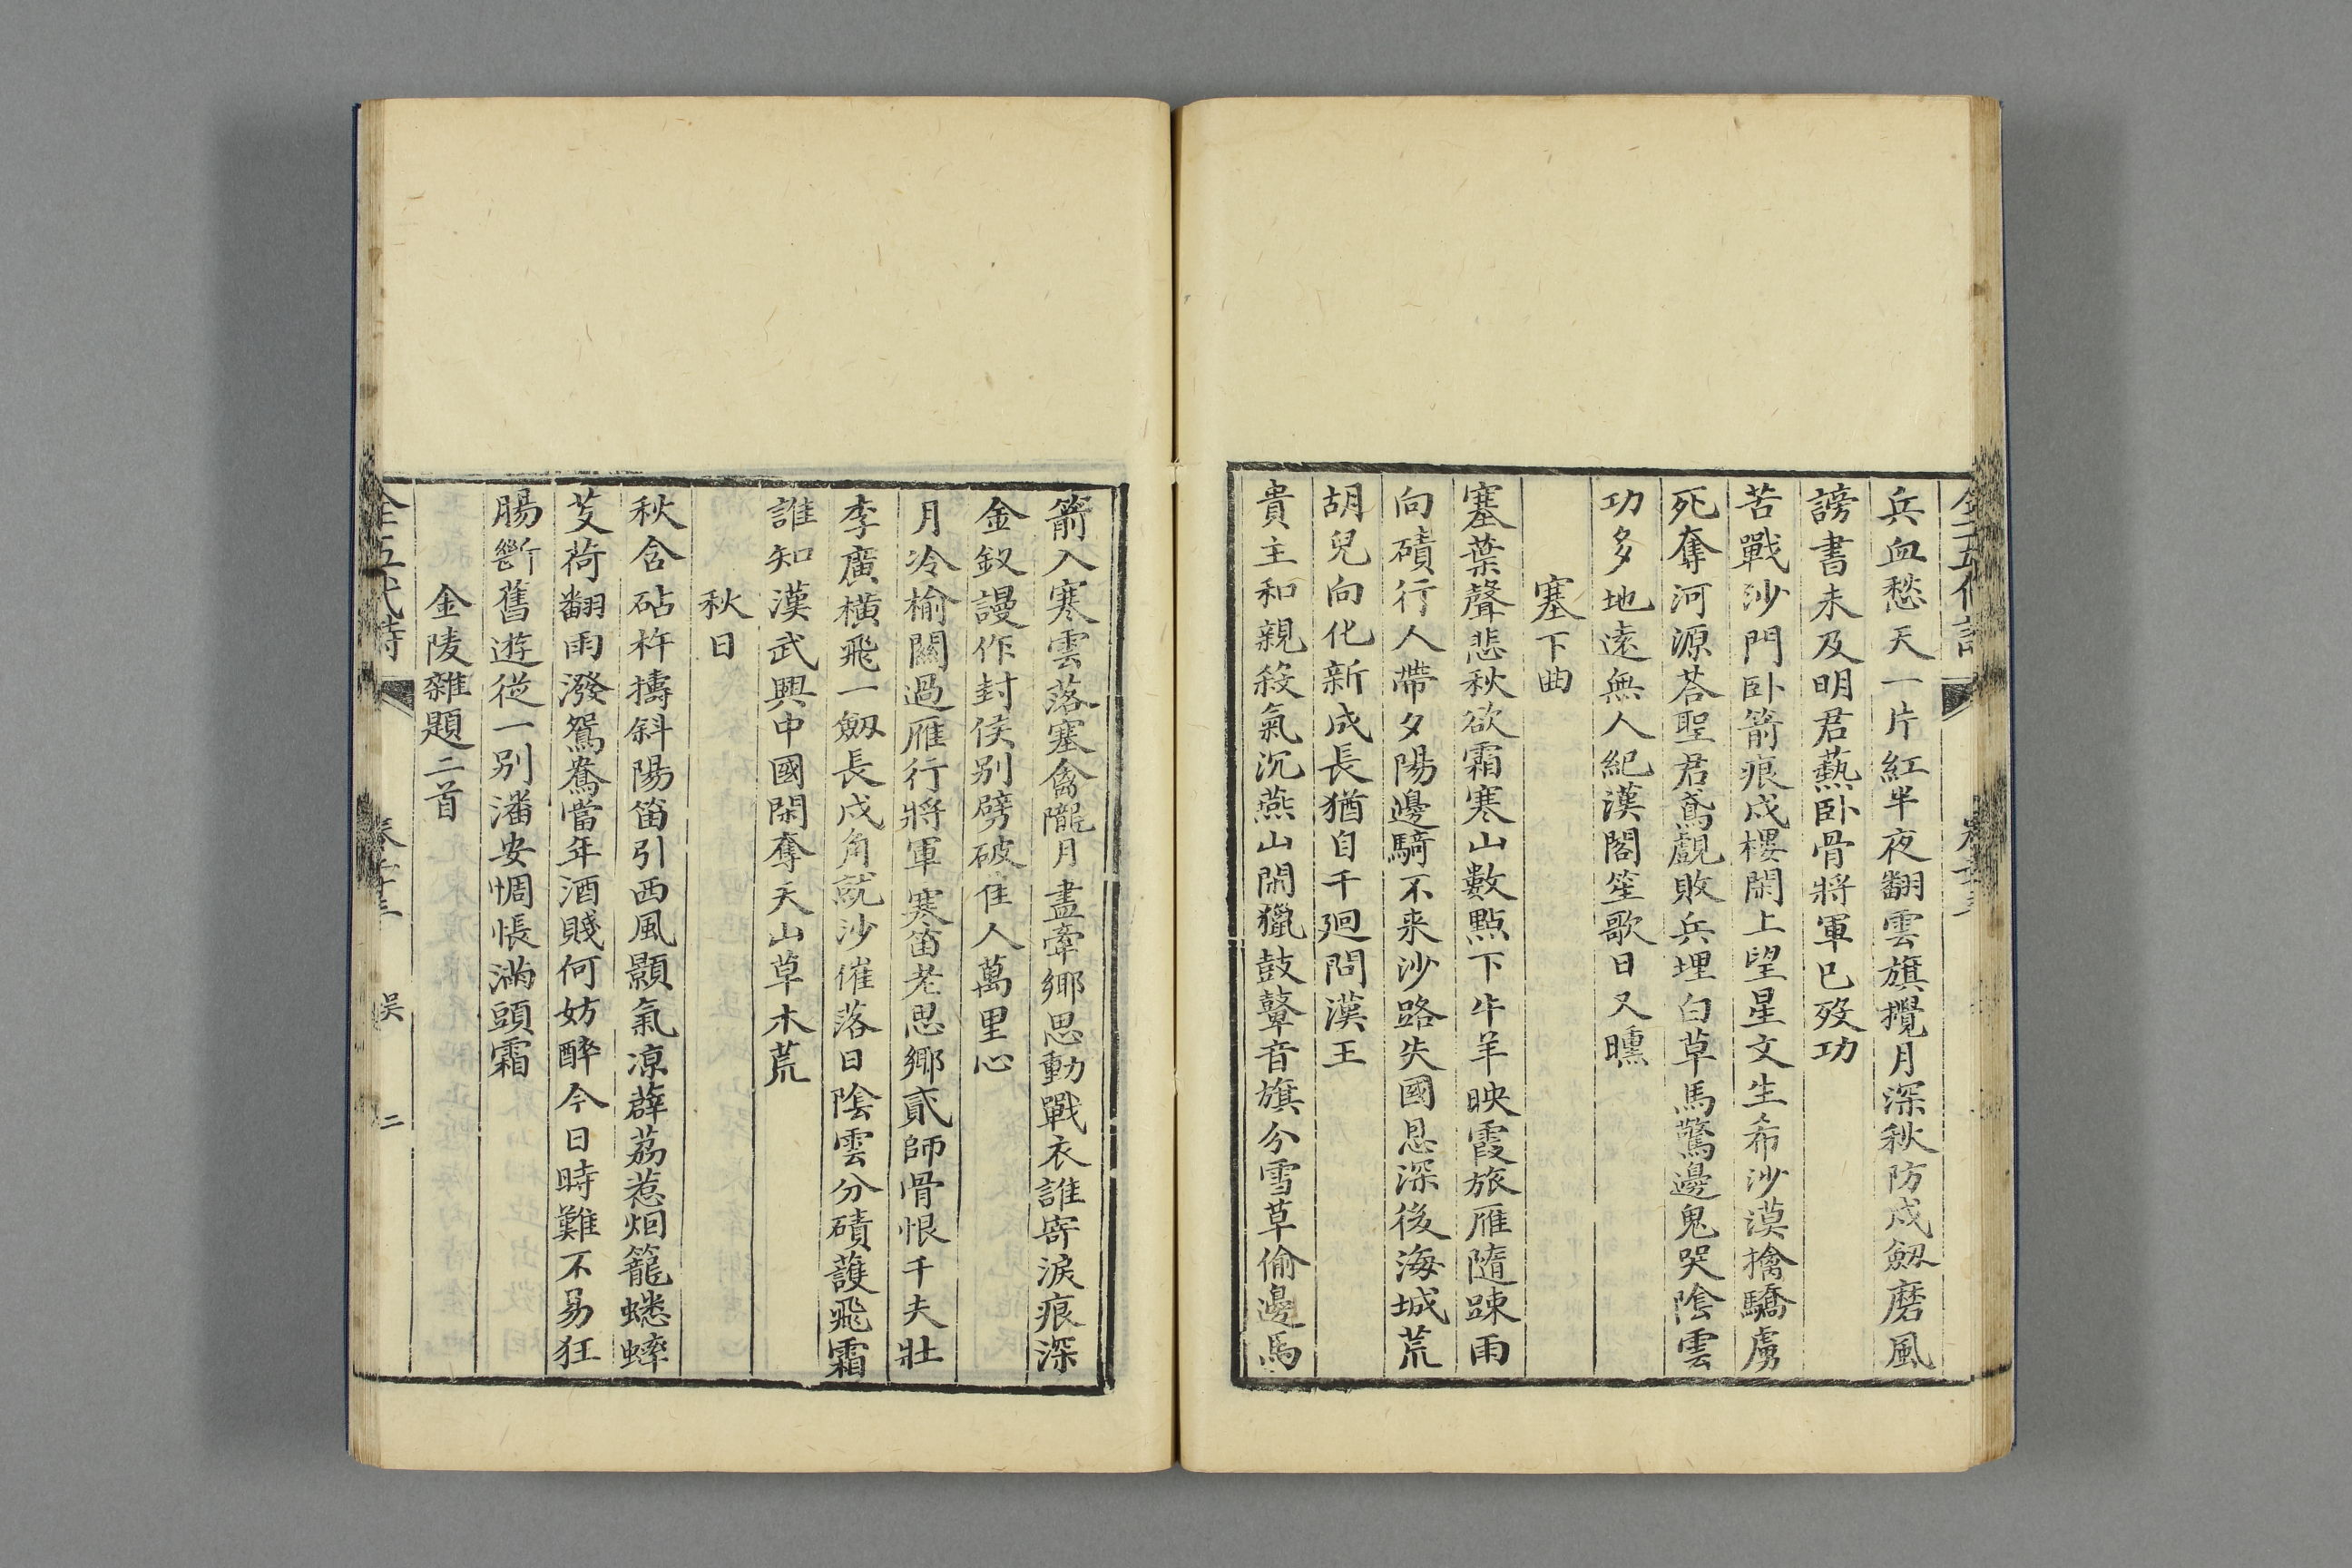 兵血愁天一片紅半夜翻雲旗攪月深秋防戍劒磨風
謗書未及明君爇卧骨將軍已殁功
苦戰沙門卧箭痕戍樓閑上望星文生希沙漠擒驕虜
死奪河源荅聖君鳶覷敗兵埋白草馬驚邊鬼哭隂雲
功多地遠無人紀漢閣笙歌日又曛
塞下曲
塞葉聲悲秋欲霜寒山數點下牛羊映霞旅雁隨踈雨
向磧行人帶夕陽邊騎不来沙路失國恩深後海城荒
胡兒向化新成長猶自千廻問漢王
貴主和親殺氣沉燕山閑獵鼓鼙音旗分雪草偷邊馬
箭入寒雲落塞禽隴月盡牽鄉思動戰衣誰寄淚痕深
金釵謾作封侯别劈破佳人萬里心
月冷榆關過雁行將軍寒笛老思鄉貳師骨恨千夫壯
李廣横飛一劒長戍角就沙催落日隂雲分磧護飛霜
誰知漢武興中國閑奪天山草木荒
秋日
秋含砧杵擣斜陽笛引西風顥氣凉薜荔惹烟籠蟋蟀
芰荷翻雨潑鴛鴦當年酒賤何妨醉今日時難不易狂
腸斷舊遊從一别潘安惆悵滿頭霜
金陵雜題二首
全五代詩 吳 二